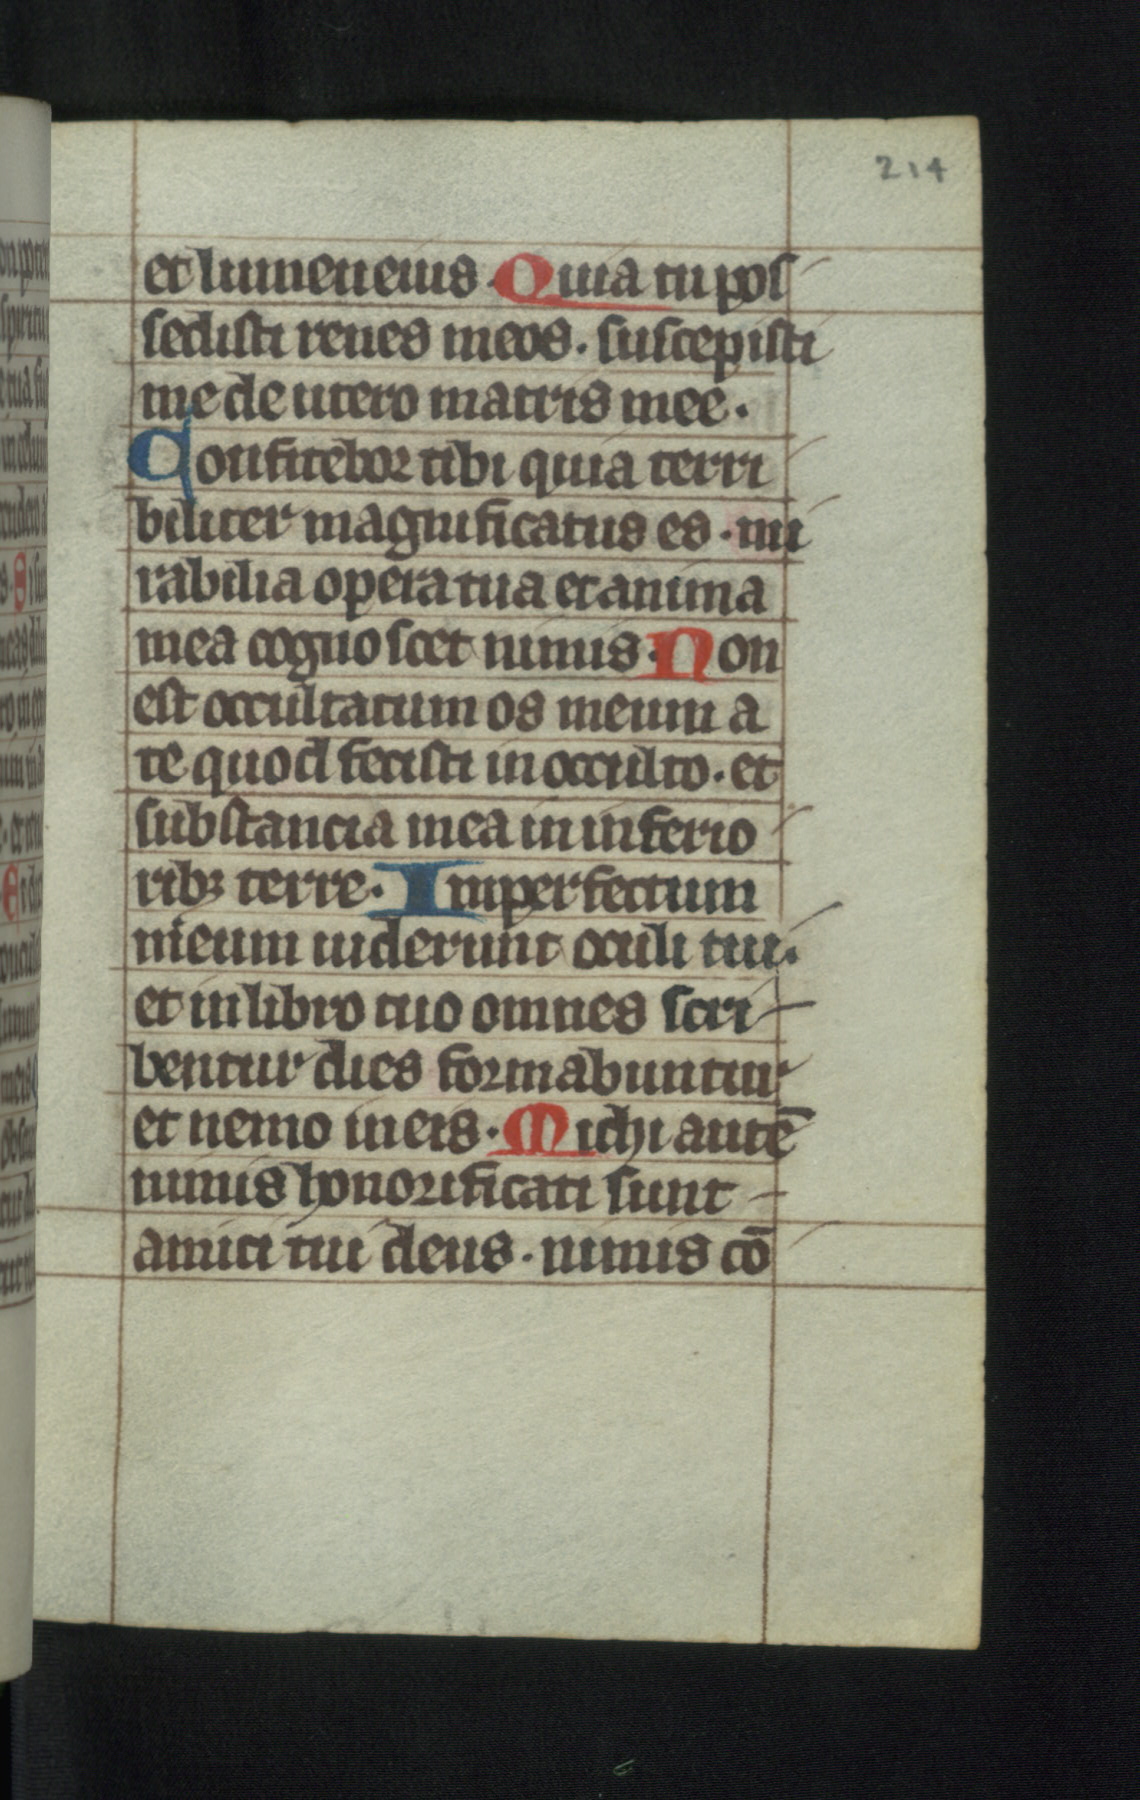 214
et lumen eius. Quia tu pos
sedisti renes meos. suscepisti
me de utero matris mee.
Confitebor tibi quia terri
biliter magnificatus es. mi
rabilia opera tua et anima
mea cognoscet nimis. Non
est occultatum os meum a
te quod fecisti in occulto. et
substancia mea in inferio
ribꝫ terre. Imperfectum
meum uiderunt occuli tui.
et in libro tuo omnes scri
bentur dies formabuntur
et nemo in eis. Michi autē
nimis honorificati sunt
amici tui deus. nimis cō